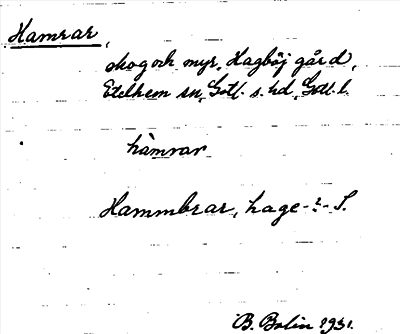 Hamrar,
skog och myr, Hagböj gård,
Etelhem sn, Gotl. s. hd, Gotl. l.
hàmrar
Hammbrar, hage - ? - S.
B. Bolin 1931.